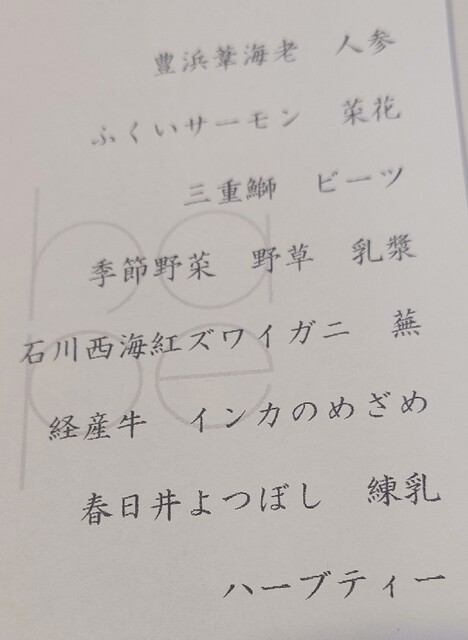 豊浜葦海老　人参
ふくいサーモン　菜花
三重鰤　ビーツ
季節野菜　野草　乳漿
石川西海紅ズワイガニ　蕪
経産牛　インカのめざめ
春日井よつぼし　練乳
ハーブティー